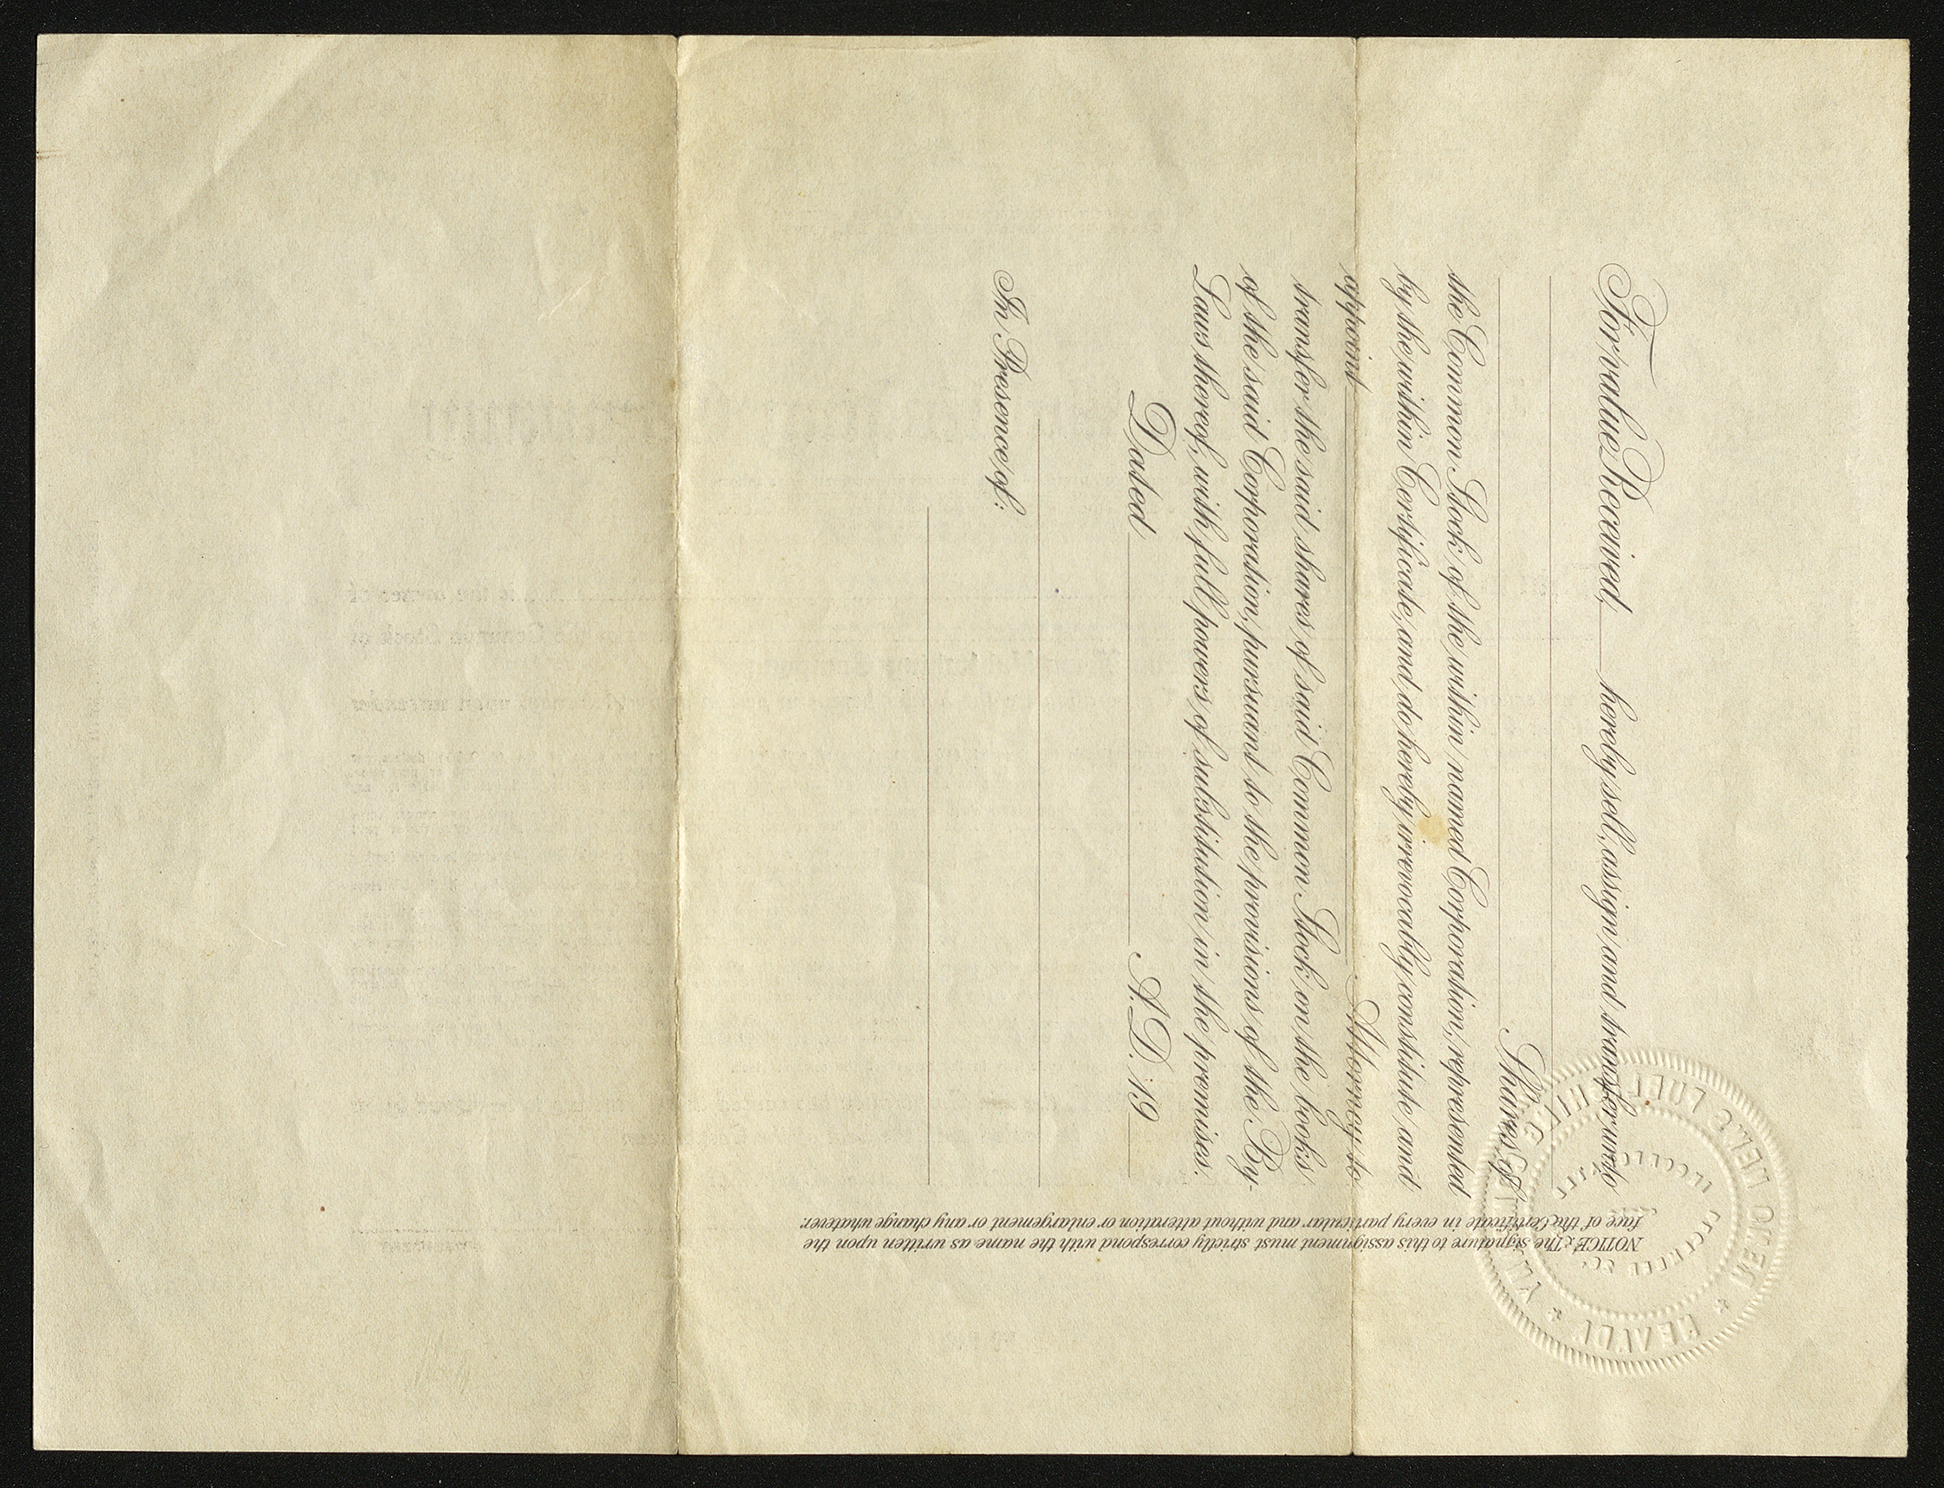 For value Received, hereby sell, assign and transfer unto
Shares of
the Common Stock of the within named Corporation, represented
by the within Certificate, and do hereby irrevocably constitute and
appoint
Attorney to
transfer the said shares of said Common Stock on the books
of the said Corporation, pursuant to the provisions of the By-
Laws thereof, with full powers of substitution in the premises.
Dated A.D. 19
In Presence of:
NOTICE: The signature to this assignment must strictly correspond with the name as written upon the
face of the Certificate in every particular and without alteration or enlargement or any change whatever.